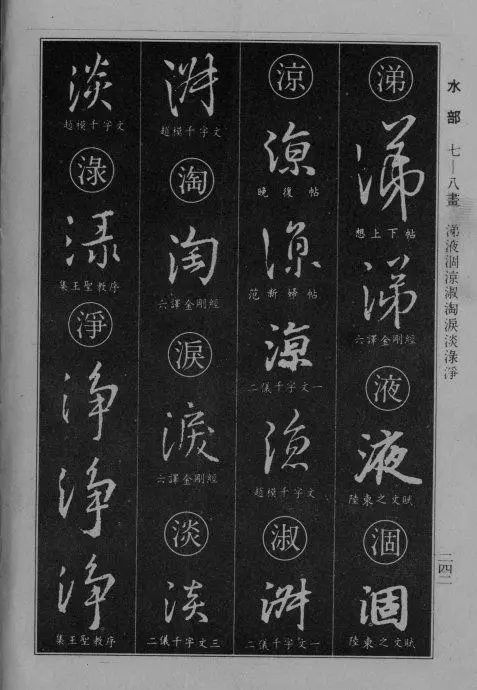 水部 七—八畫 涕液涸涼淑淘淚淡淥淨
二四二
涕
涕
想上下帖
涕
六譯金剛經
液
液
陸柬之文賦
涸
涸
陸柬之文賦
涼
涼
晚復帖
涼
范新婦帖
涼
二儀千字文一
涼
趙模千字文
淑
淑
二儀千字文一
淑
趙模千字文
淘
淘
六譯金剛經
淚
淚
六譯金剛經
淡
淡
二儀千字文三
淡
趙模千字文
淥
淥
集王聖教序
淨
淨
淨
淨
集王聖教序